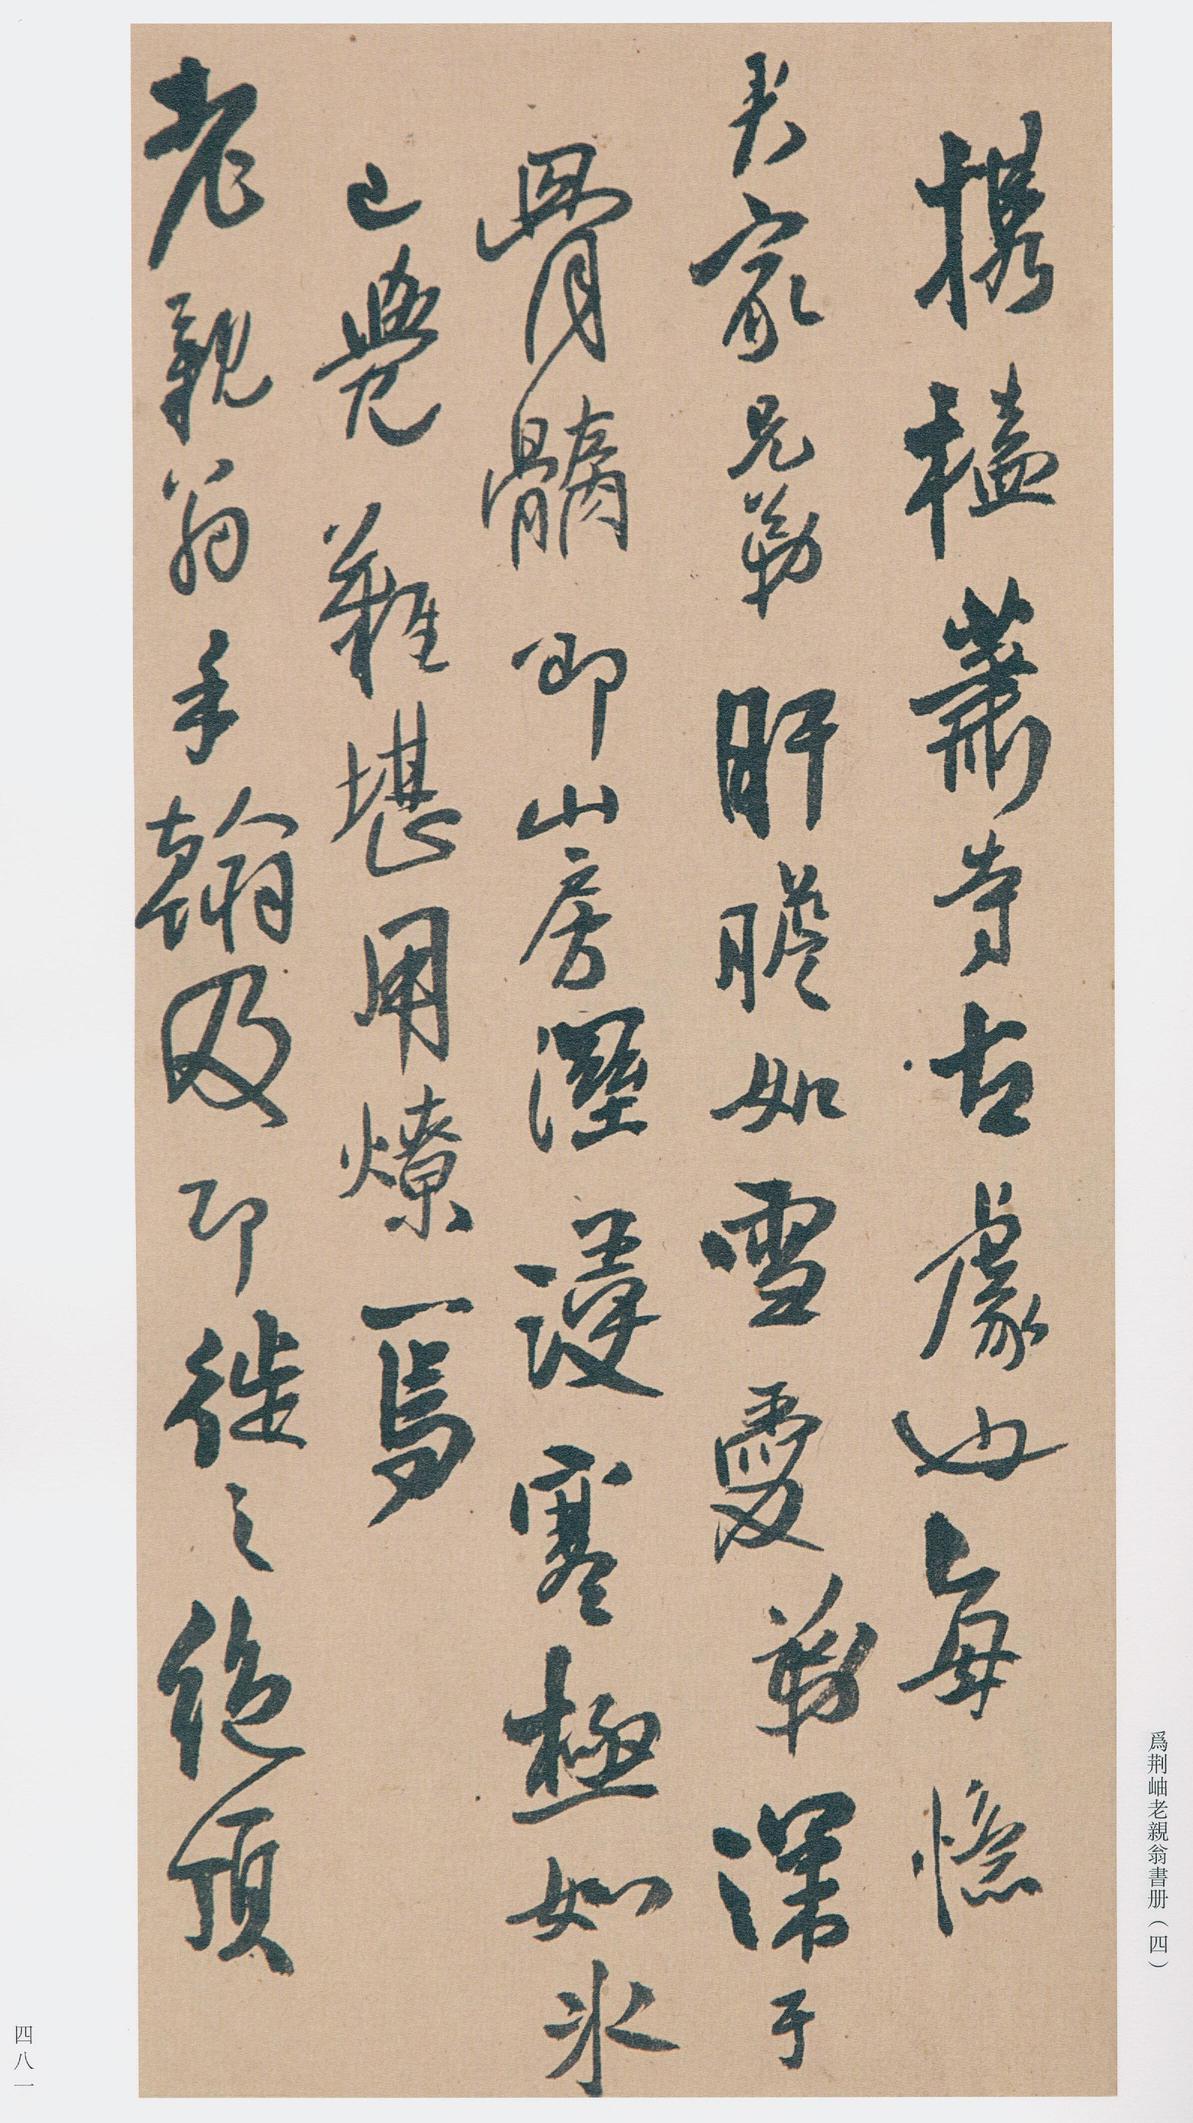 攜榼蕭寺古處也每憶
家兄勤肝膽如雪愛勤深于
骨髓即山房溼漫寒極如冰
已覺難堪用燎一焉
老親翁手翰及即徙之絕頂
爲荆岫老親翁書册（四）
四八一